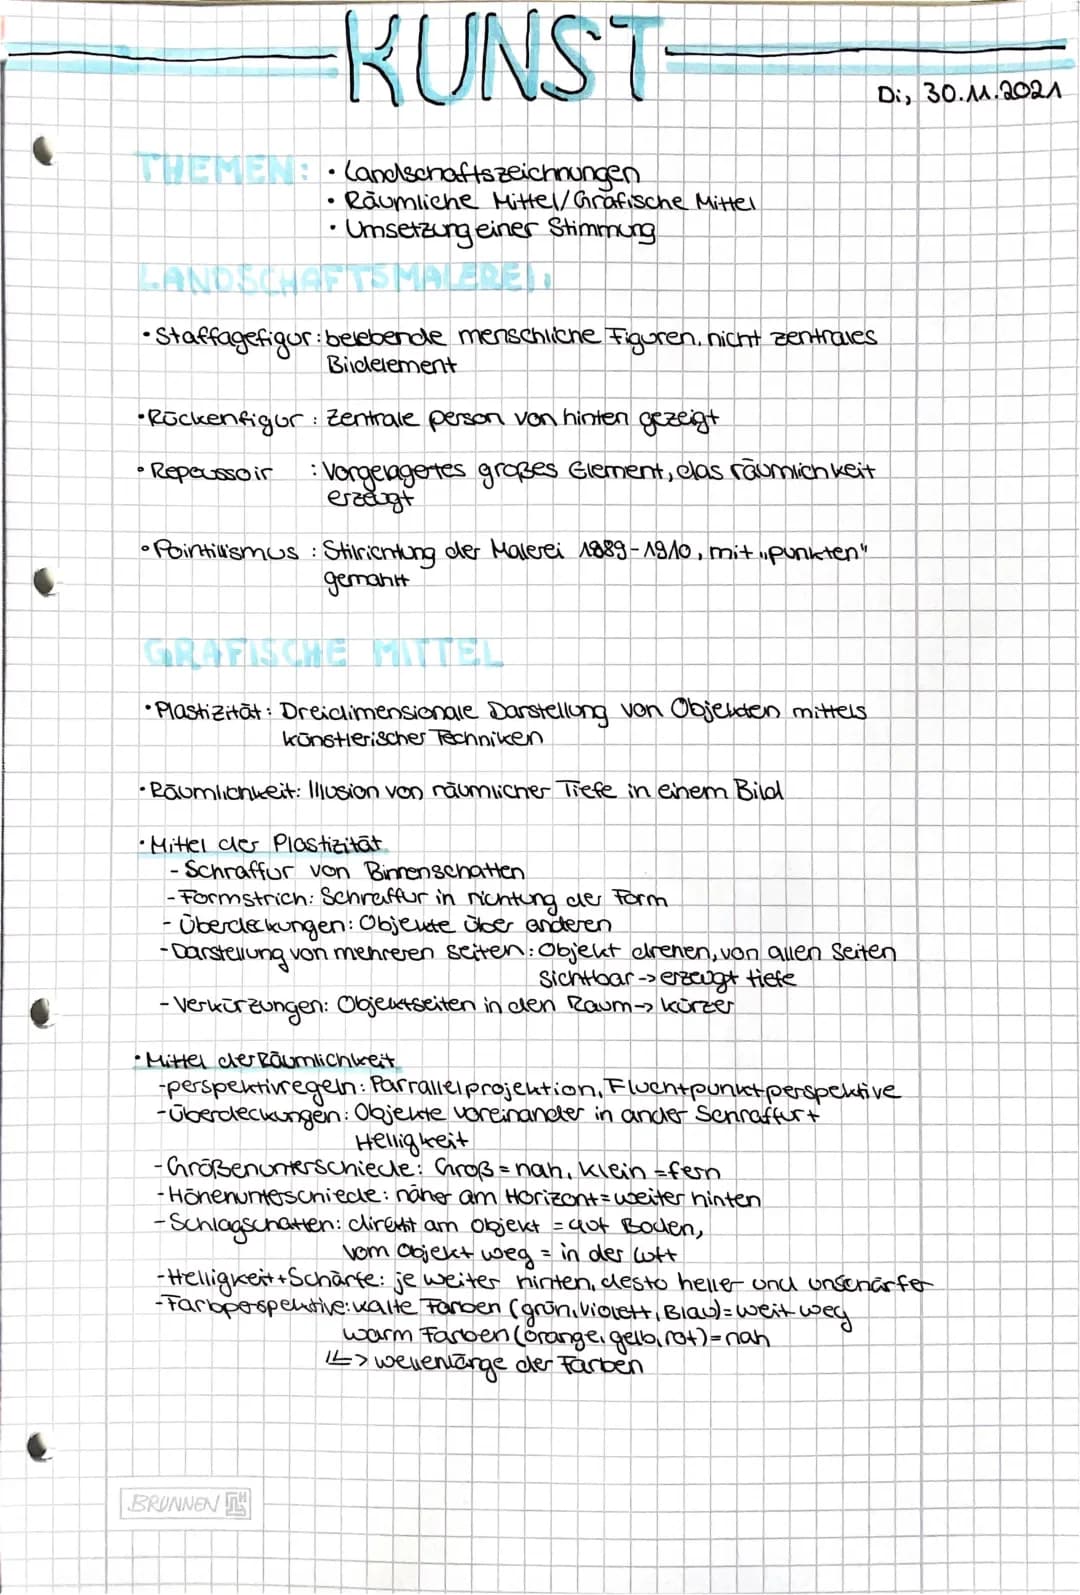 KUNST
Di, 30.11.2021
THEMEN: • Landschaftszeichnungen
• Räumliche Mittel/Grafische Mittel
• Umsetzung einer Stimmung
LANDSCHAFTSMALEREI:
• Staffagefigur: belebende menschliche Figuren, nicht zentrales
Bildelement
• Rückenfigur: Zentrale person von hinten gezeigt
• Repoussoir : Vorgelagertes großes Element, das räumlichkeit
erzeugt
• Pointilismus : Stilrichtung der Malerei 1889-1910, mit „punkten"
gemahlt
GRAFISCHE MITTEL
• Plastizität: Dreidimensionale Darstellung von Objekten mittels
künstlerischer Techniken
• Räumlichkeit: Illusion von räumlicher Tiefe in einem Bild
• Mittel der Plastizität
- Schraffur von Binnenschatten
- Formstrich: Schraffur in richtung der Form
- Überdeckungen: Objekte über anderen
- Darstellung von mehreren seiten: Objekt drehen, von allen Seiten
sichtbar -> erzeugt tiefe
- Verkürzungen: Objektseiten in den Raum -> kürzer
• Mittel der Räumlichkeit
- perspektivregeln: Parrallelprojektion, Fluchtpunktperspektive
- Überdeckungen: Objekte voreinander in ander Schraffur +
Helligkeit
- Größenunterschiede: Groß = nah, klein = fern
- Höhenunteschiede: näher am Horizont = weiter hinten
- Schlagschatten: direkt am Objekt = auf Boden,
vom Objekt weg = in der Luft
- Helligkeit + Schärfe: je weiter hinten, desto heller und unschärfer
- Farbperspektive: kalte Farben (grün, Violett, Blau) = weit weg
warm Farben (orange, gelb, rot) = nah
↳> wellenlänge der Farben
BRUNNEN